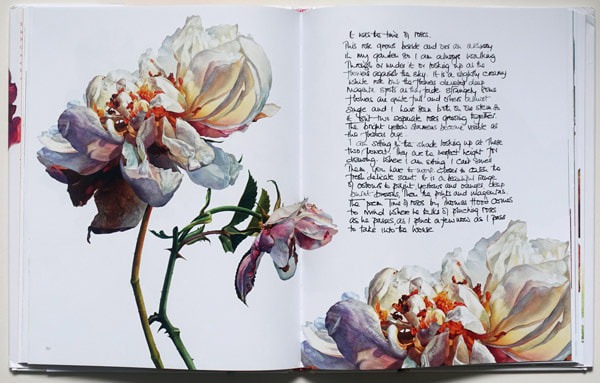 It was the time of roses.
This rose grows beside and over an archway
in my garden so I am always walking
through or under it or looking up at the
flowers against the sky. It is a slightly creamy
white rose but the flowers develop deep
magenta spots as they fade strangely some
flowers are quite full and others almost
single and I have been back to the stem
it isn't two separate roses growing together.
The bright yellow stamens become visible as
the flowers age.
I am sitting in the shade looking up at these
two flowers. They are the perfect height for
drawing. Where I am sitting I can smell
them. You have to come close to catch the
fresh delicate scent. It is a beautiful range
of colours to paint, yellows and oranges, deep
burnt then the pinks and magentas.
The poem Time of roses by Thomas Hood comes
to mind where he talks of plucking roses
as he passes, as I pluck a few now as I pass
to take into the house